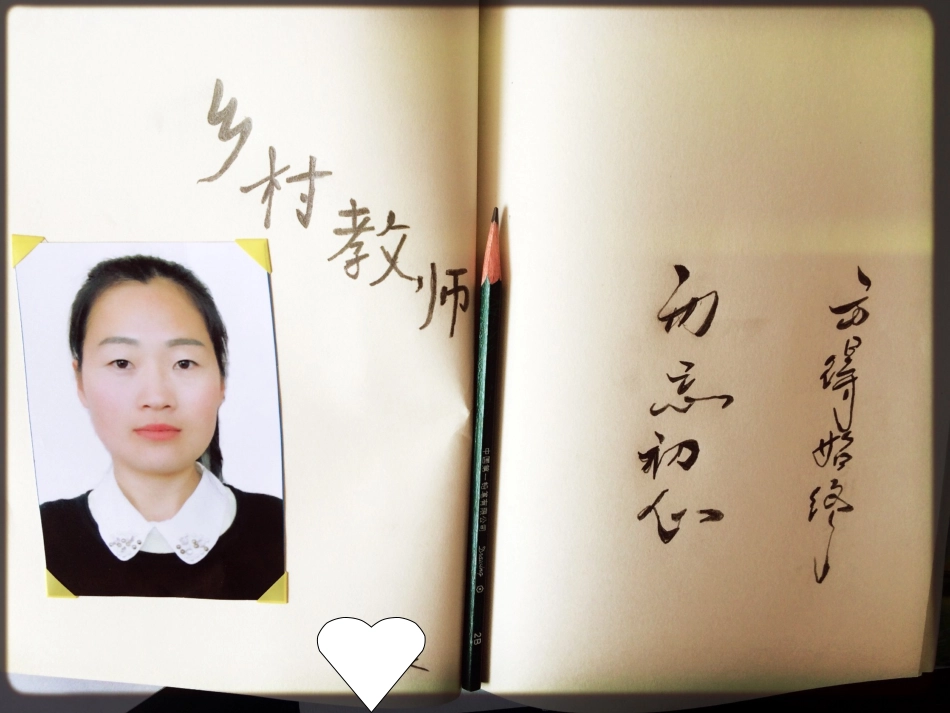 乡村教师
勿忘初心
方得始终
中国第一铅笔有限公司
2B